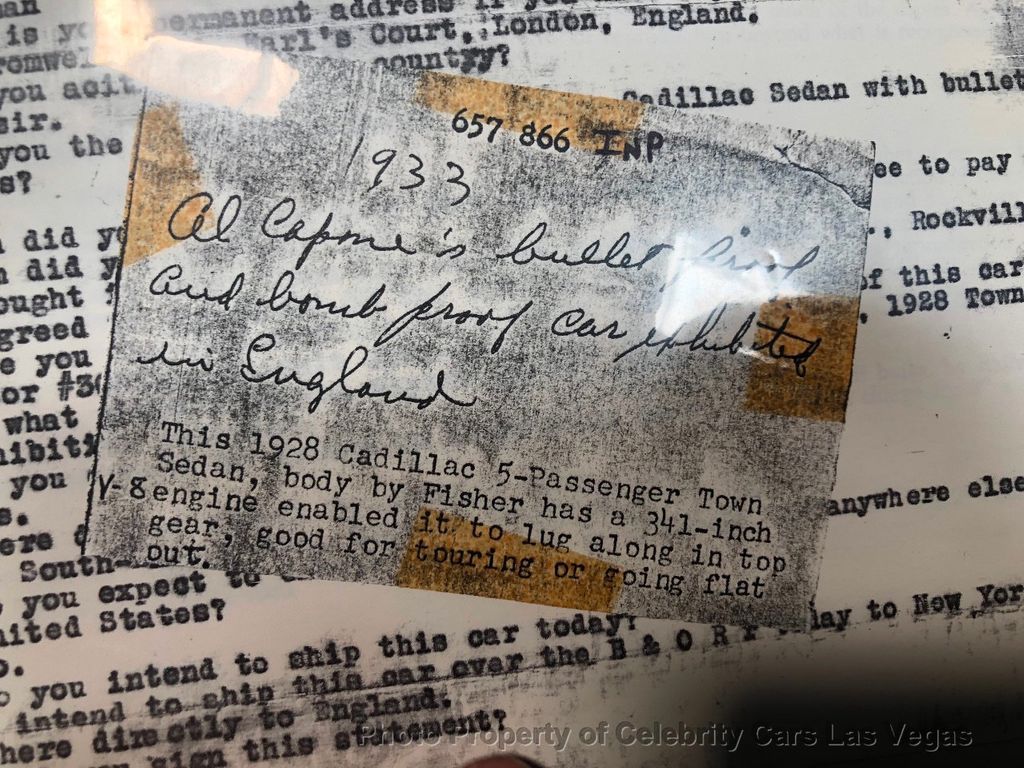 is your permanent address if you
Earl's Court, London, England.
country?
Cadillac Sedan with bullet
sir.
you the
ee to pay
s?
657 866 INP
933
Al Capone's bullet proof
and bomb proof car exhibited
in England
This 1928 Cadillac 5-Passenger Town
Sedan, body by Fisher has a 341-inch
V-8 engine enabled it to lug along in top
gear, good for touring or going flat
out.
did y
., Rockvill
did y
f this car
ought
, 1928 Town
greed
e you
or #3
what
you
anywhere else
s.
ere
South-
you expect to
nited States?
you intend to ship this car today?
intend to ship this car over the B & O R R today to New Yor
here directly to England.
sign this statement?
Photo Property of Celebrity Cars Las Vegas